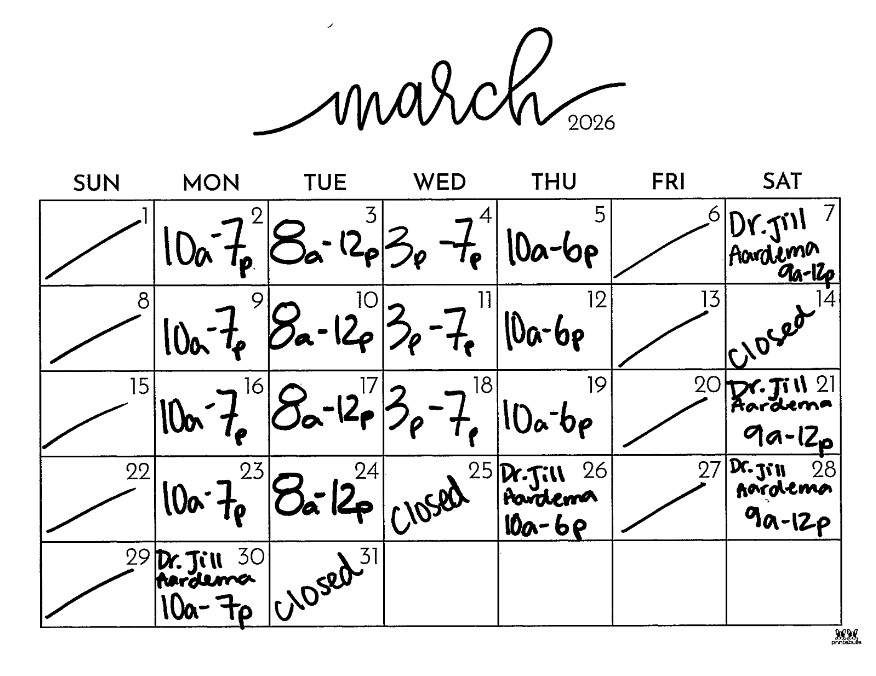 march
2026
SUN MON TUE WED THU FRI SAT
1 2 3 4 5 6 7
10a-7p 8a-12p 3p-7p 10a-6p Dr. Jill
Aardema
9a-12p
8 9 10 11 12 13 14
10a-7p 8a-12p 3p-7p 10a-6p closed
15 16 17 18 19 20 21
10a-7p 8a-12p 3p-7p 10a-6p Dr. Jill
Aardema
9a-12p
22 23 24 25 26 27 28
10a-7p 8a-12p closed Dr. Jill Dr. Jill
Aardema Aardema
10a-6p 9a-12p
29 30 31
Dr. Jill closed
Aardema
10a-7p